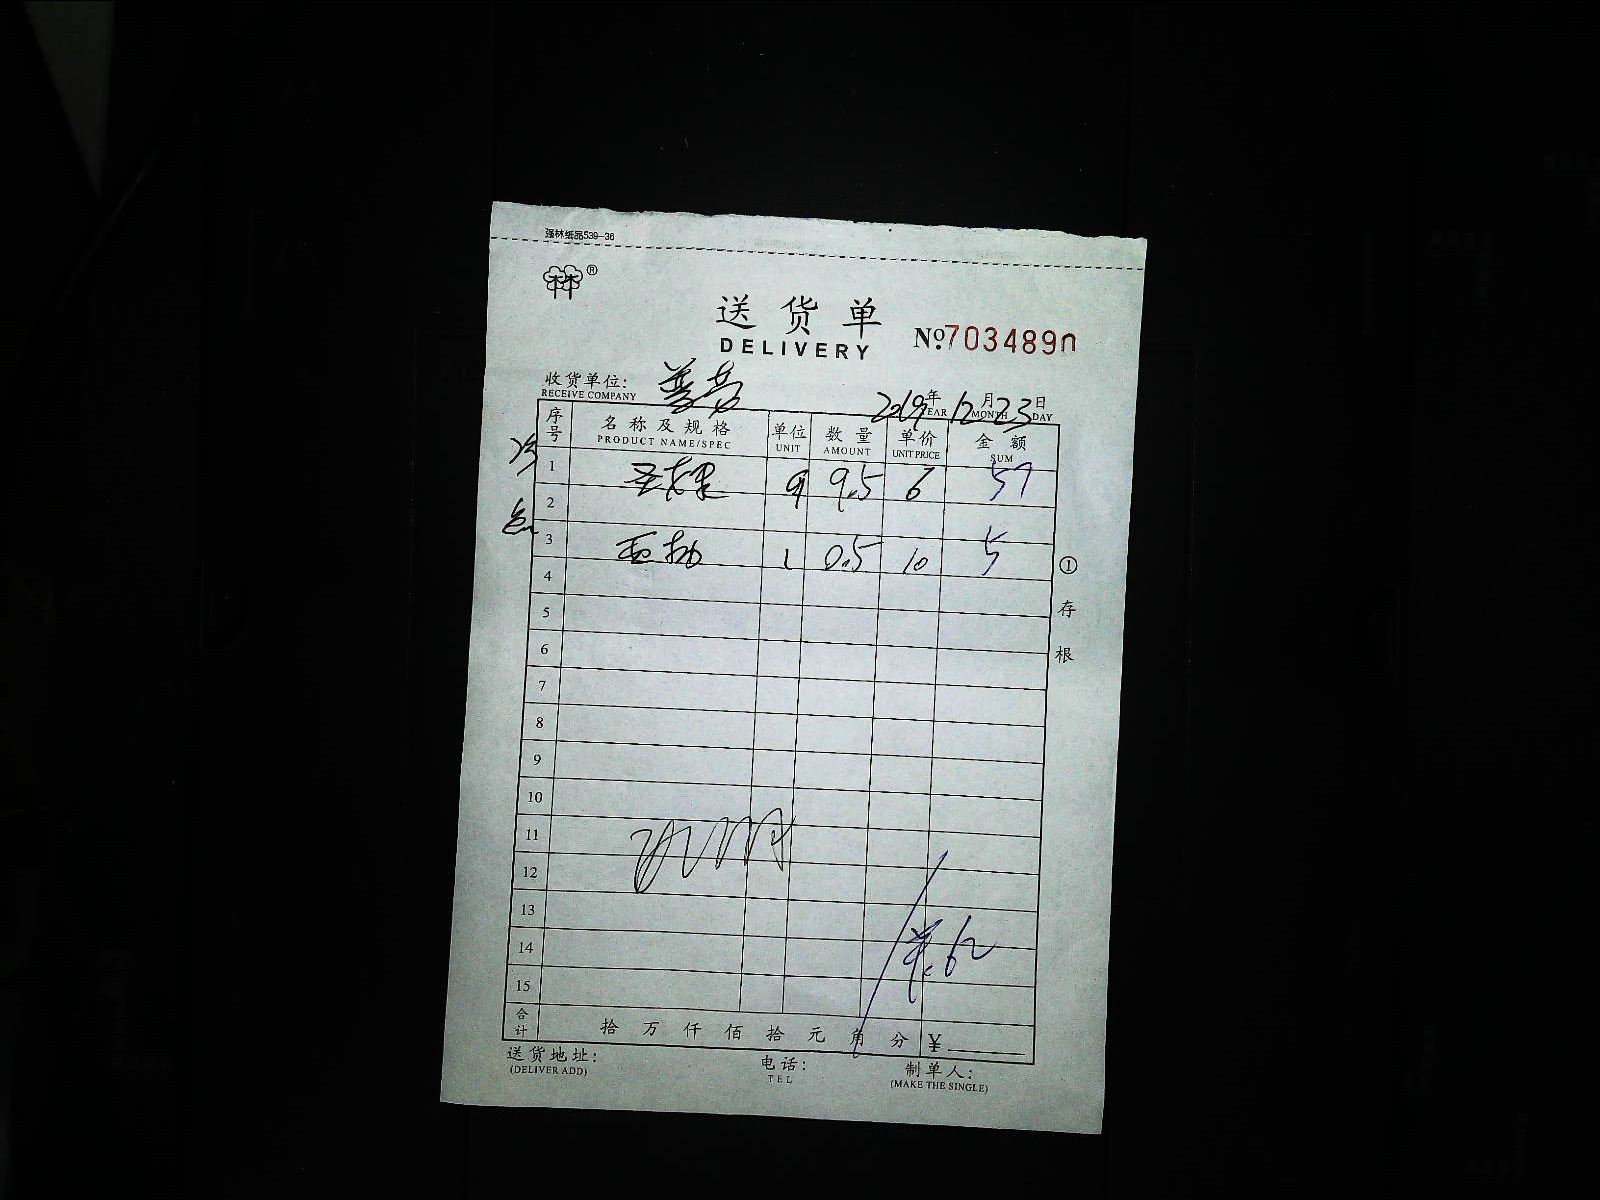 强林纸品539-36
林林®
送货单
DELIVERY
No:7034890
收货单位:
RECEIVE COMPANY
2019年12月23日
YEAR MONTH DAY
序号 名称及规格 单位 数量 单价 金额
PRODUCT NAME/SPEC UNIT AMOUNT UNIT PRICE SUM
1 9 9.5 6 57
2
3 1 0.5 10 5
4
5
6
7
8
9
10
11
12
13
14
15
62
合计 拾 万 仟 佰 拾 元 角 分 ¥
送货地址: 电话: 制单人:
(DELIVER ADD) TEL (MAKE THE SINGLE)
①存根